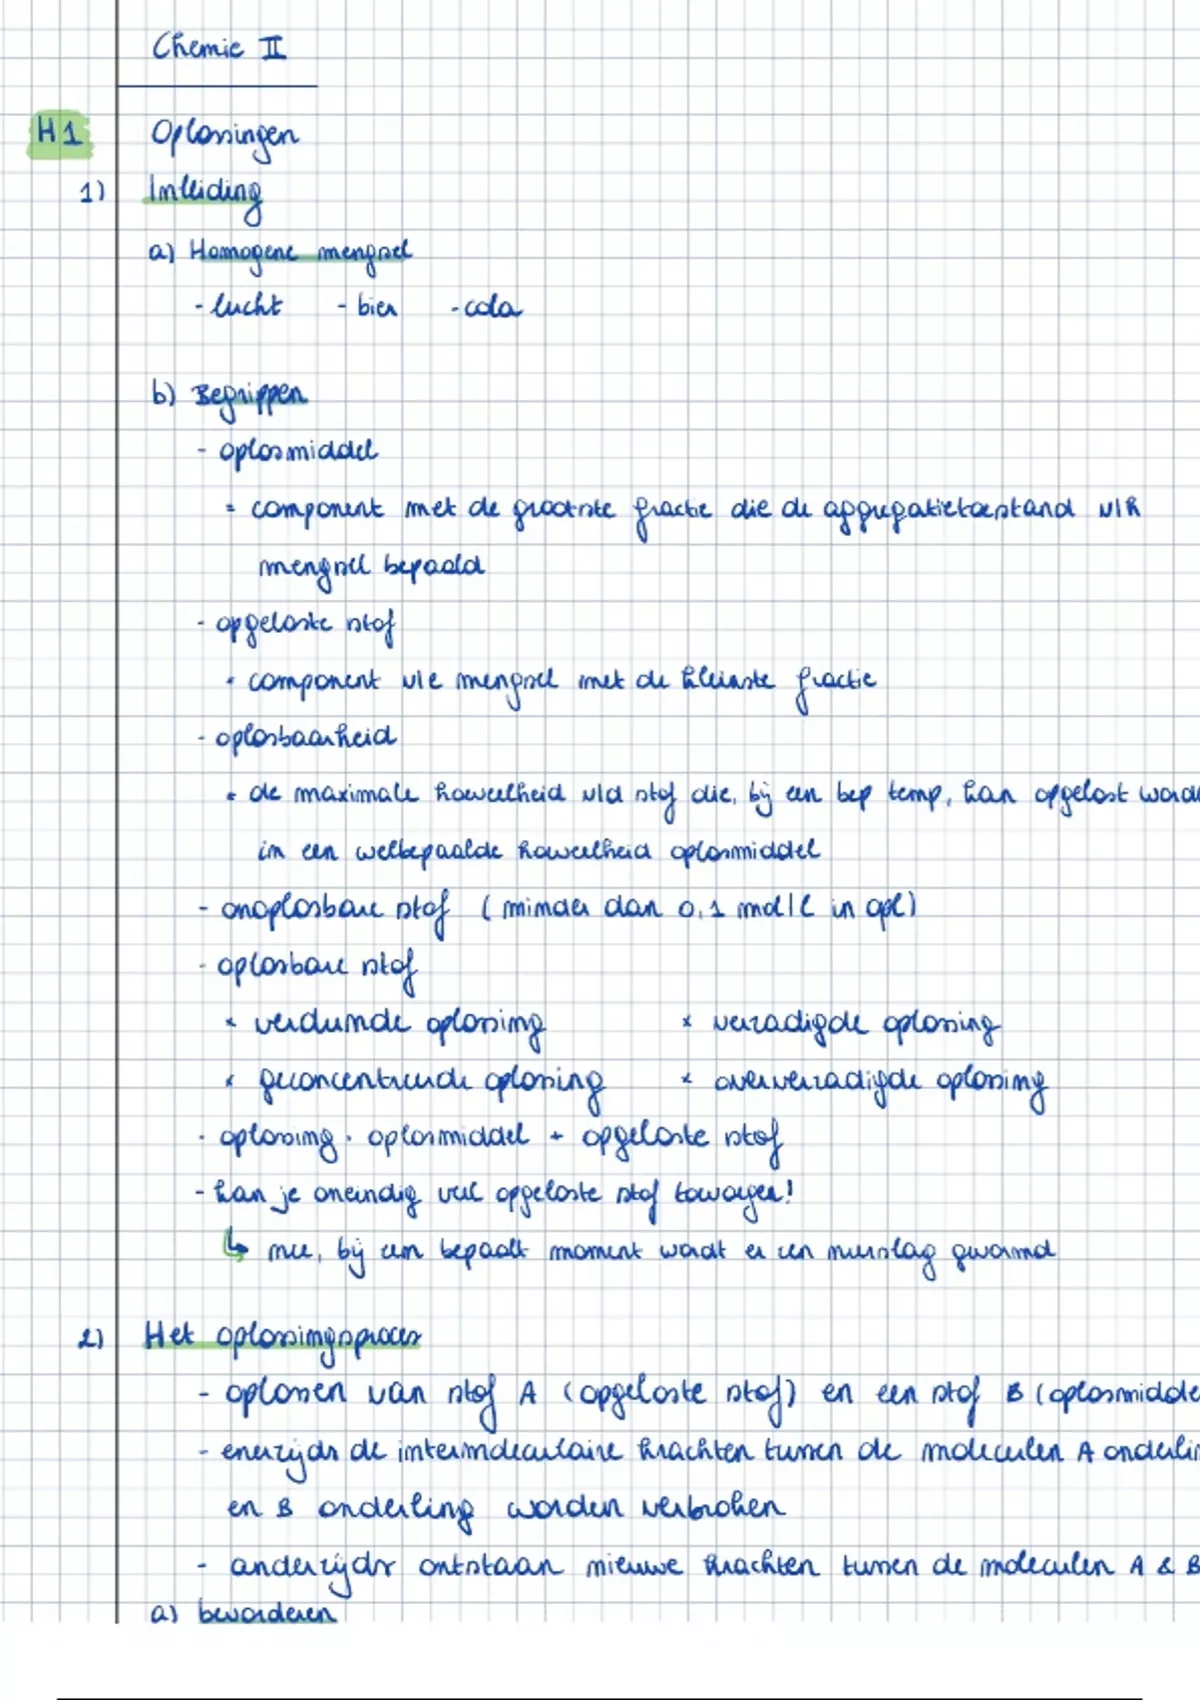 Chemie II
H1 Oplossingen
1) Inleiding
a) Homogene mengsel
- lucht - bier - cola
b) Begrippen
- oplosmiddel
* component met de grootste fractie die de aggregatietoestand v/h
mengsel bepaald
- opgeloste stof
* component v/e mengsel met de kleinste fractie
- oplosbaarheid
* de maximale hoeveelheid v/d stof die, bij een bep temp, kan opgelost worde
in een welbepaalde hoeveelheid oplosmiddel
- onoplosbare stof (minder dan 0,1 mol/l in opl)
- oplosbare stof
* verdunde oplossing * verzadigde oplossing
* geconcentreerde oplossing * oververzadigde oplossing
- oplossing = oplosmiddel + opgeloste stof
- kan je oneindig veel opgeloste stof toevoegen!
↳ nee, bij een bepaalt moment wordt er een neerslag gevormd
2) Het oplossingsproces
- oplossen van stof A (opgeloste stof) en een stof B (oplosmidde
- enerzijds de intermoleculaire krachten tussen de moleculen A onderlin
en B onderling worden verbroken
- anderzijds ontstaan nieuwe krachten tussen de moleculen A & B
a) bevorderen